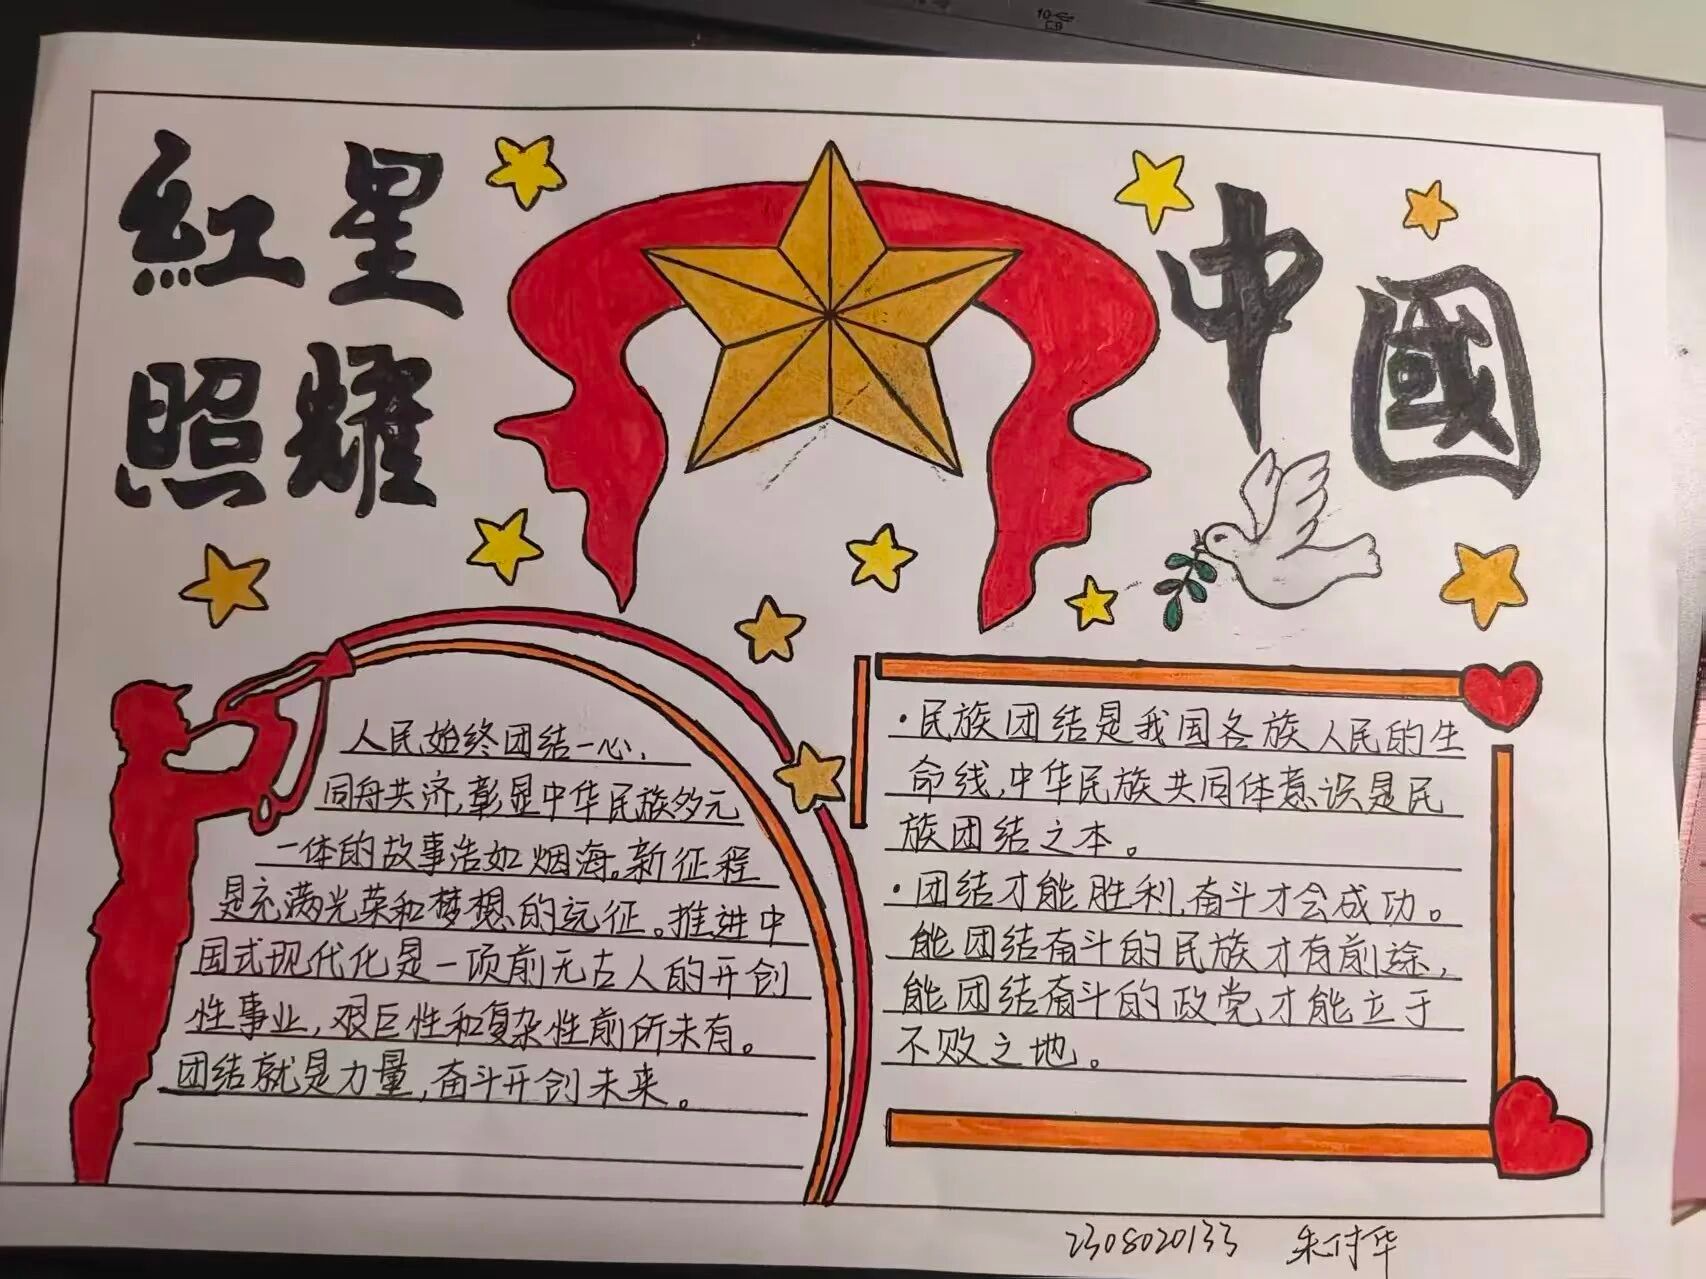 紅星
照耀
中國
人民始终团结一心、
同舟共济,彰显中华民族多元
一体的故事浩如烟海。新征程
是充满光荣和梦想的远征。推进中
国式现代化是一项前无古人的开创
性事业,艰巨性和复杂性前所未有。
团结就是力量,奋斗开创未来。
·民族团结是我国各族人民的生
命线,中华民族共同体意识是民
族团结之本。
·团结才能胜利,奋斗才会成功。
能团结奋斗的民族才有前途,
能团结奋斗的政党才能立于
不败之地。
2308020133 朱付华